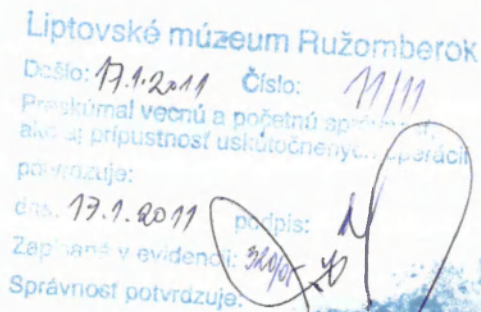 Liptovské múzeum Ružomberok
Došlo: 17.1.2011 Číslo: 11/11
Preskúmal vecnú a početnú správnosť,
ako aj prípustnosť uskutočnených operácií
potvrdzuje:
dňa: 17.1.2011 podpis:
Zapísané v evidencii:
Správnosť potvrdzuje: